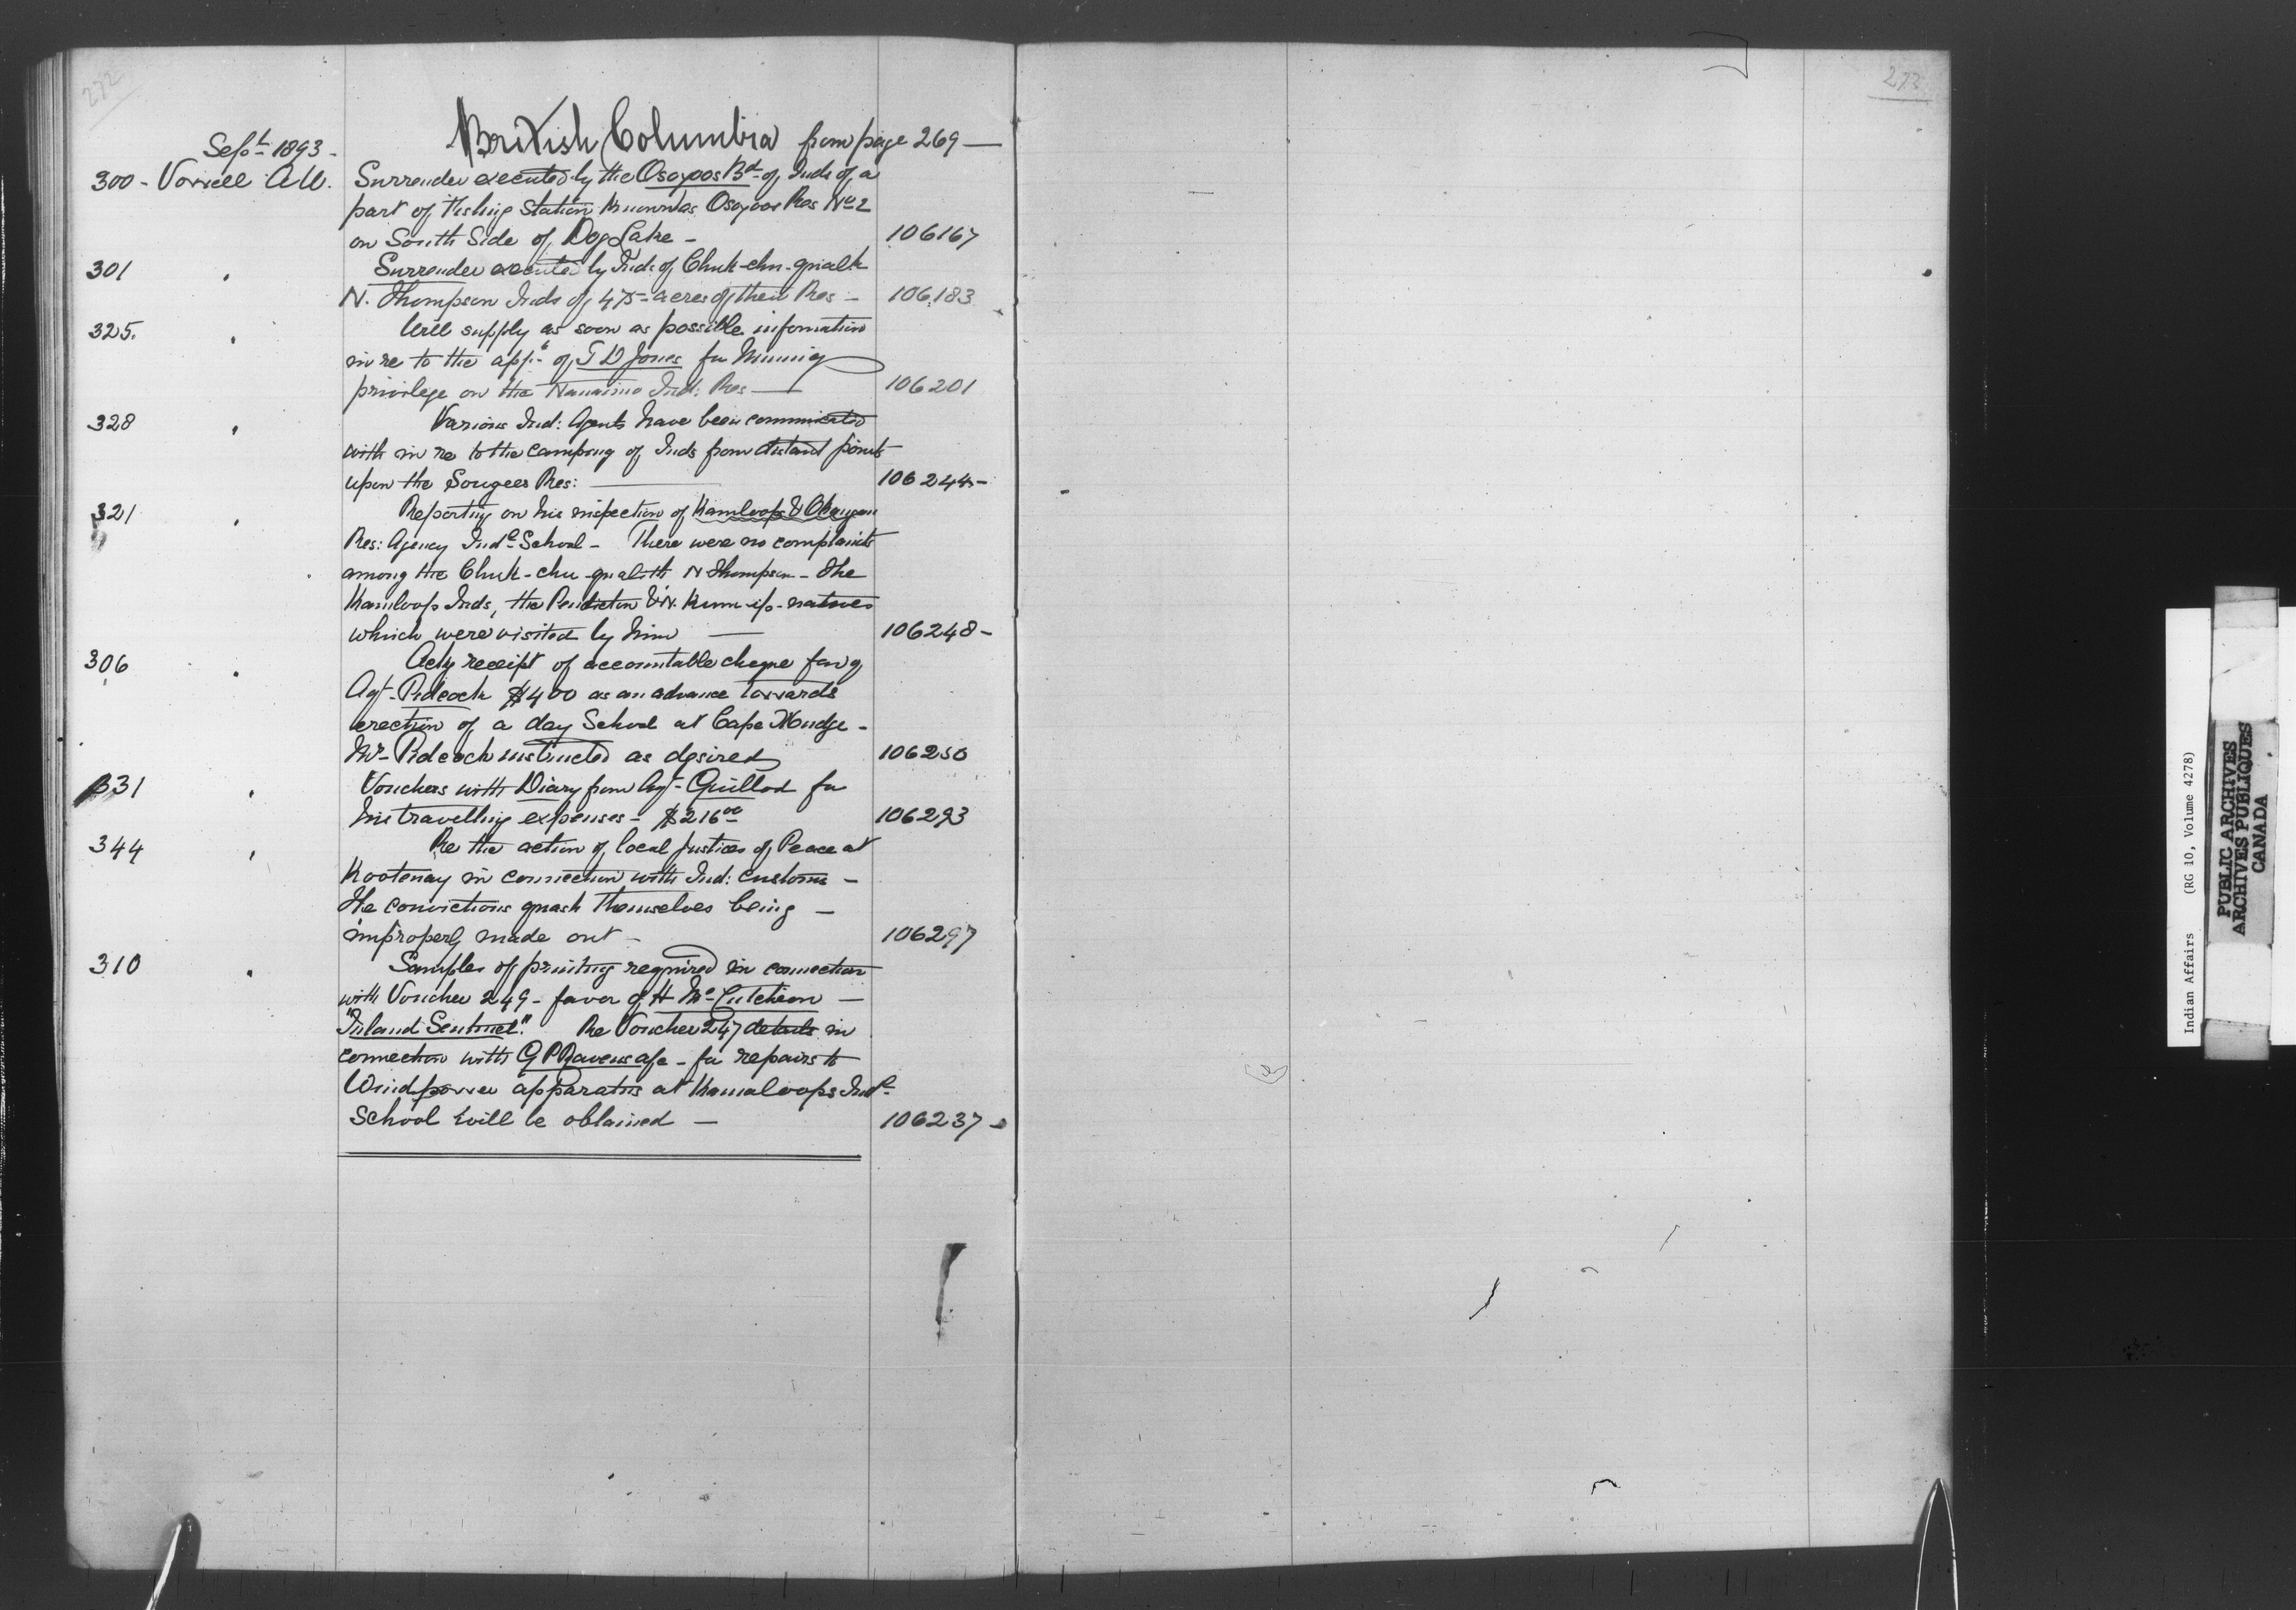 272
273
British Columbia from page 269 —
Sept 1893 -
300 - Vowell A.W. Surrender executed by the Osoyoos Bd of Inds of a
part of Fishing Station known as Osoyoos Res No 2
on South Side of Dog Lake - 106167
301 " Surrender executed by Inds of Chuk-chu-qualk
N. Thompson Inds of 475 acres of their Res - 106183
325. " Will supply as soon as possible information
in re to the appn of T D Jones for Mining
privilege on the Nanaimo Ind: Res — 106201
328 " Various Ind: Agents have been commicated
with in re to the camping of Inds from distant points
upon the Songees Res: — 106244 -
321 " Reporting on his inspection of Kamloops & Okanagan
Res: Agency Indl School - There were no complaints
among the Chuk-chu-qualth N Thompson - the
Kamloops Inds, the Penticton & N. Kum-ip-natives
which were visited by him — 106248 -
306 " Ackg receipt of accountable cheque favg
Agt - Pidcock $400 as an advance towards
erection of a day School at Cape Mudge -
Mr - Pidcock instructed as desired 106250
331 " Vouchers with Diary from Agt - Guillod for
his travelling expenses - $216 00 106293
344 " Re the action of local Justices of Peace at
Kootenay in connection with Ind: customs -
The convictions quash themselves being -
improperly made out - 106297
310 " Samples of printing required in connection
with Voucher 249 - favor of H McCutcheon —
"Inland Sentinel." Re Voucher 247 details in
connection with G P - for repairs to
Windpower apparatus at Kamaloops Indl
School will be obtained — 106237 -
Indian Affairs (RG 10, Volume 4278)
PUBLIC ARCHIVES
ARCHIVES PUBLIQUES
CANADA